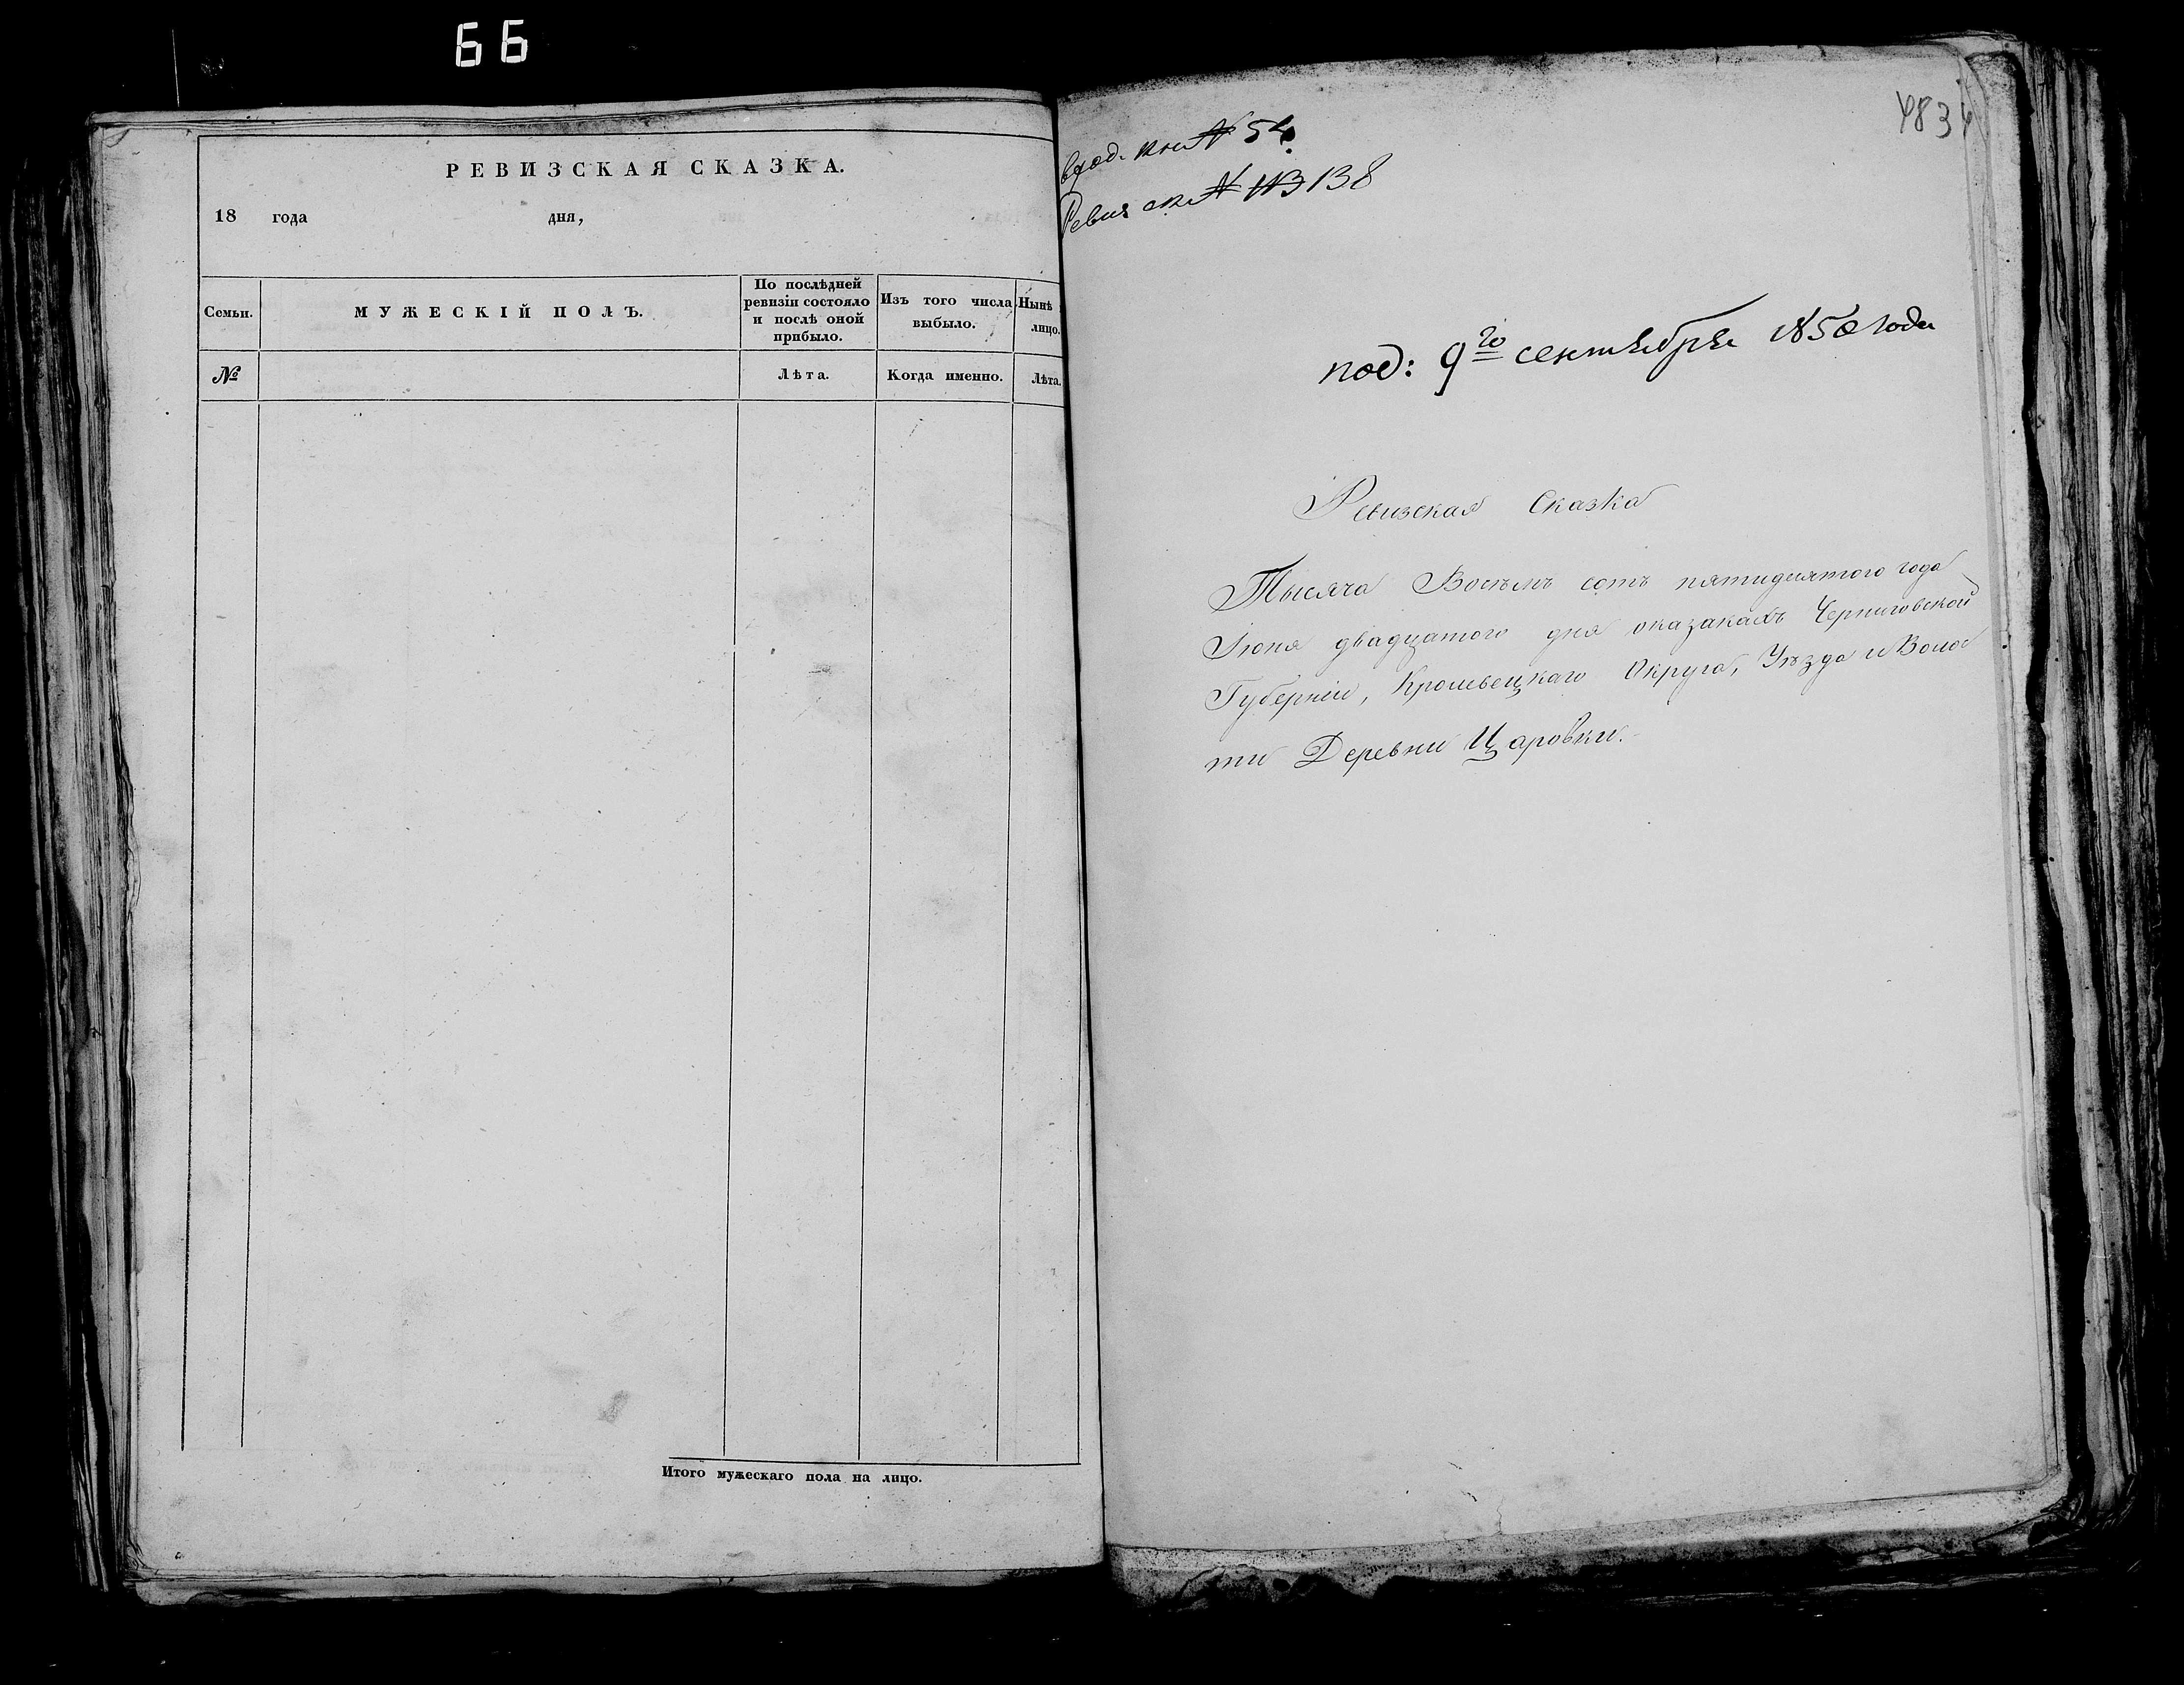 66
РЕВИЗСКАЯ СКАЗКА.
18 года дня,
Семьи.
МУЖЕСКІЙ ПОЛЪ.
По послѣдней
ревизіи состояло
и послѣ оной
прибыло.
Изъ того числа
выбыло.
Нынѣ
лицо.
№
Лѣта.
Когда именно.
Лѣта.
Итого мужескаго пола на лицо.
483
вход. кн. № 54.
Ревиз ск № 113 138
под: 9го сентября 1850 года
Ревизская Сказка
Тысяча Восѣмъ сотъ пятидесятого года
Іюня двадцатого дня оказакахъ Черниговской
Губерніи, Кролевецкаго Округа, Уѣзда и Волос
ти Деревни Царовки.